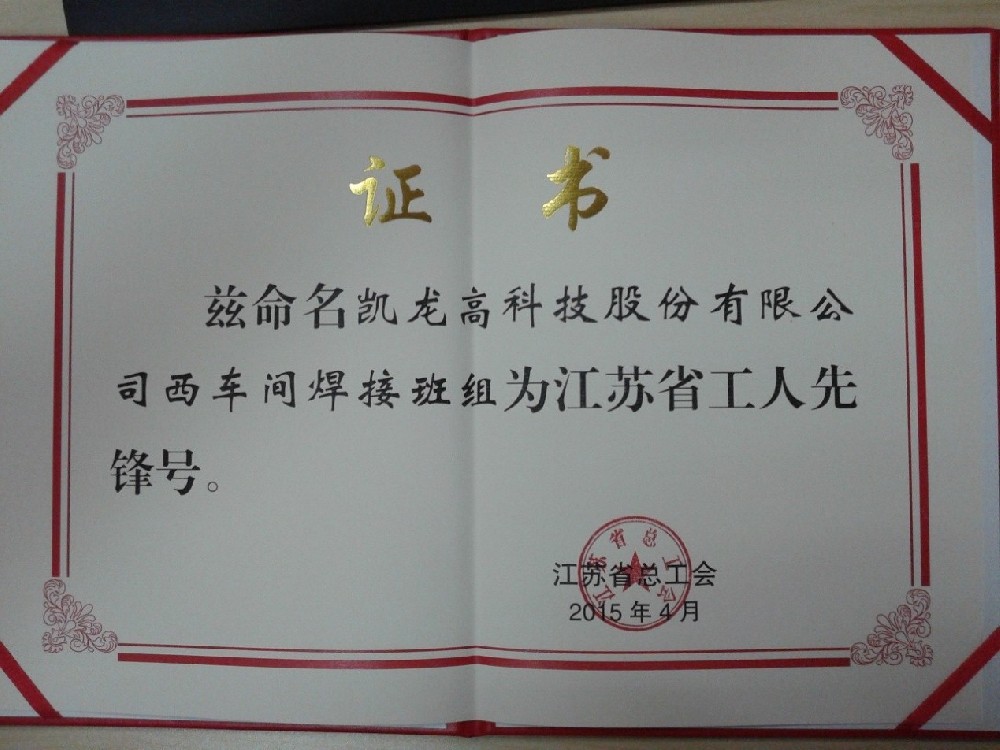 证书
兹命名凯龙高科技股份有限公
司西车间焊接班组为江苏省工人先
锋号。
江苏省总工会
江苏省总工会
2015年4月